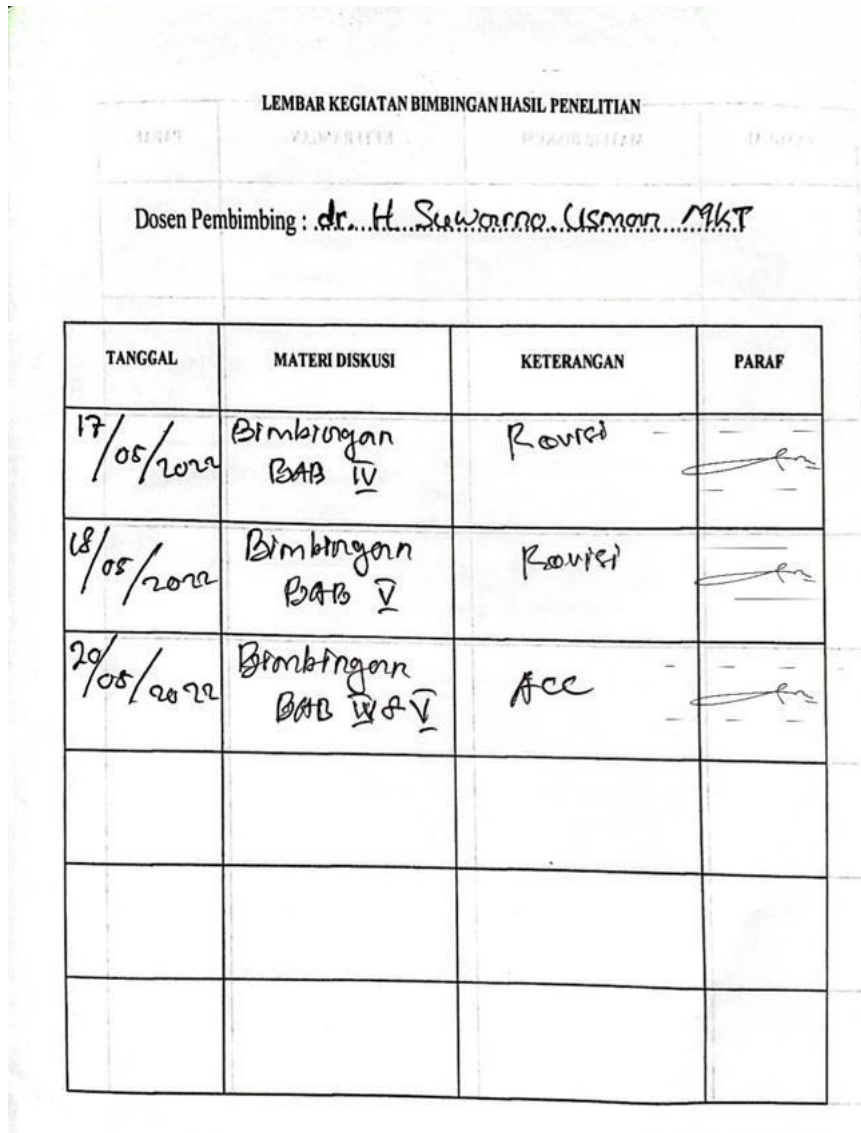 LEMBAR KEGIATAN BIMBINGAN HASIL PENELITIAN
Dosen Pembimbing : dr. H. Suwarno Usman MKT
TANGGAL MATERI DISKUSI KETERANGAN PARAF
17/05/2022 Bimbingan BAB IV Revisi
18/05/2022 Bimbingan BAB V Revisi
20/05/2022 Bimbingan BAB IV & V Acc